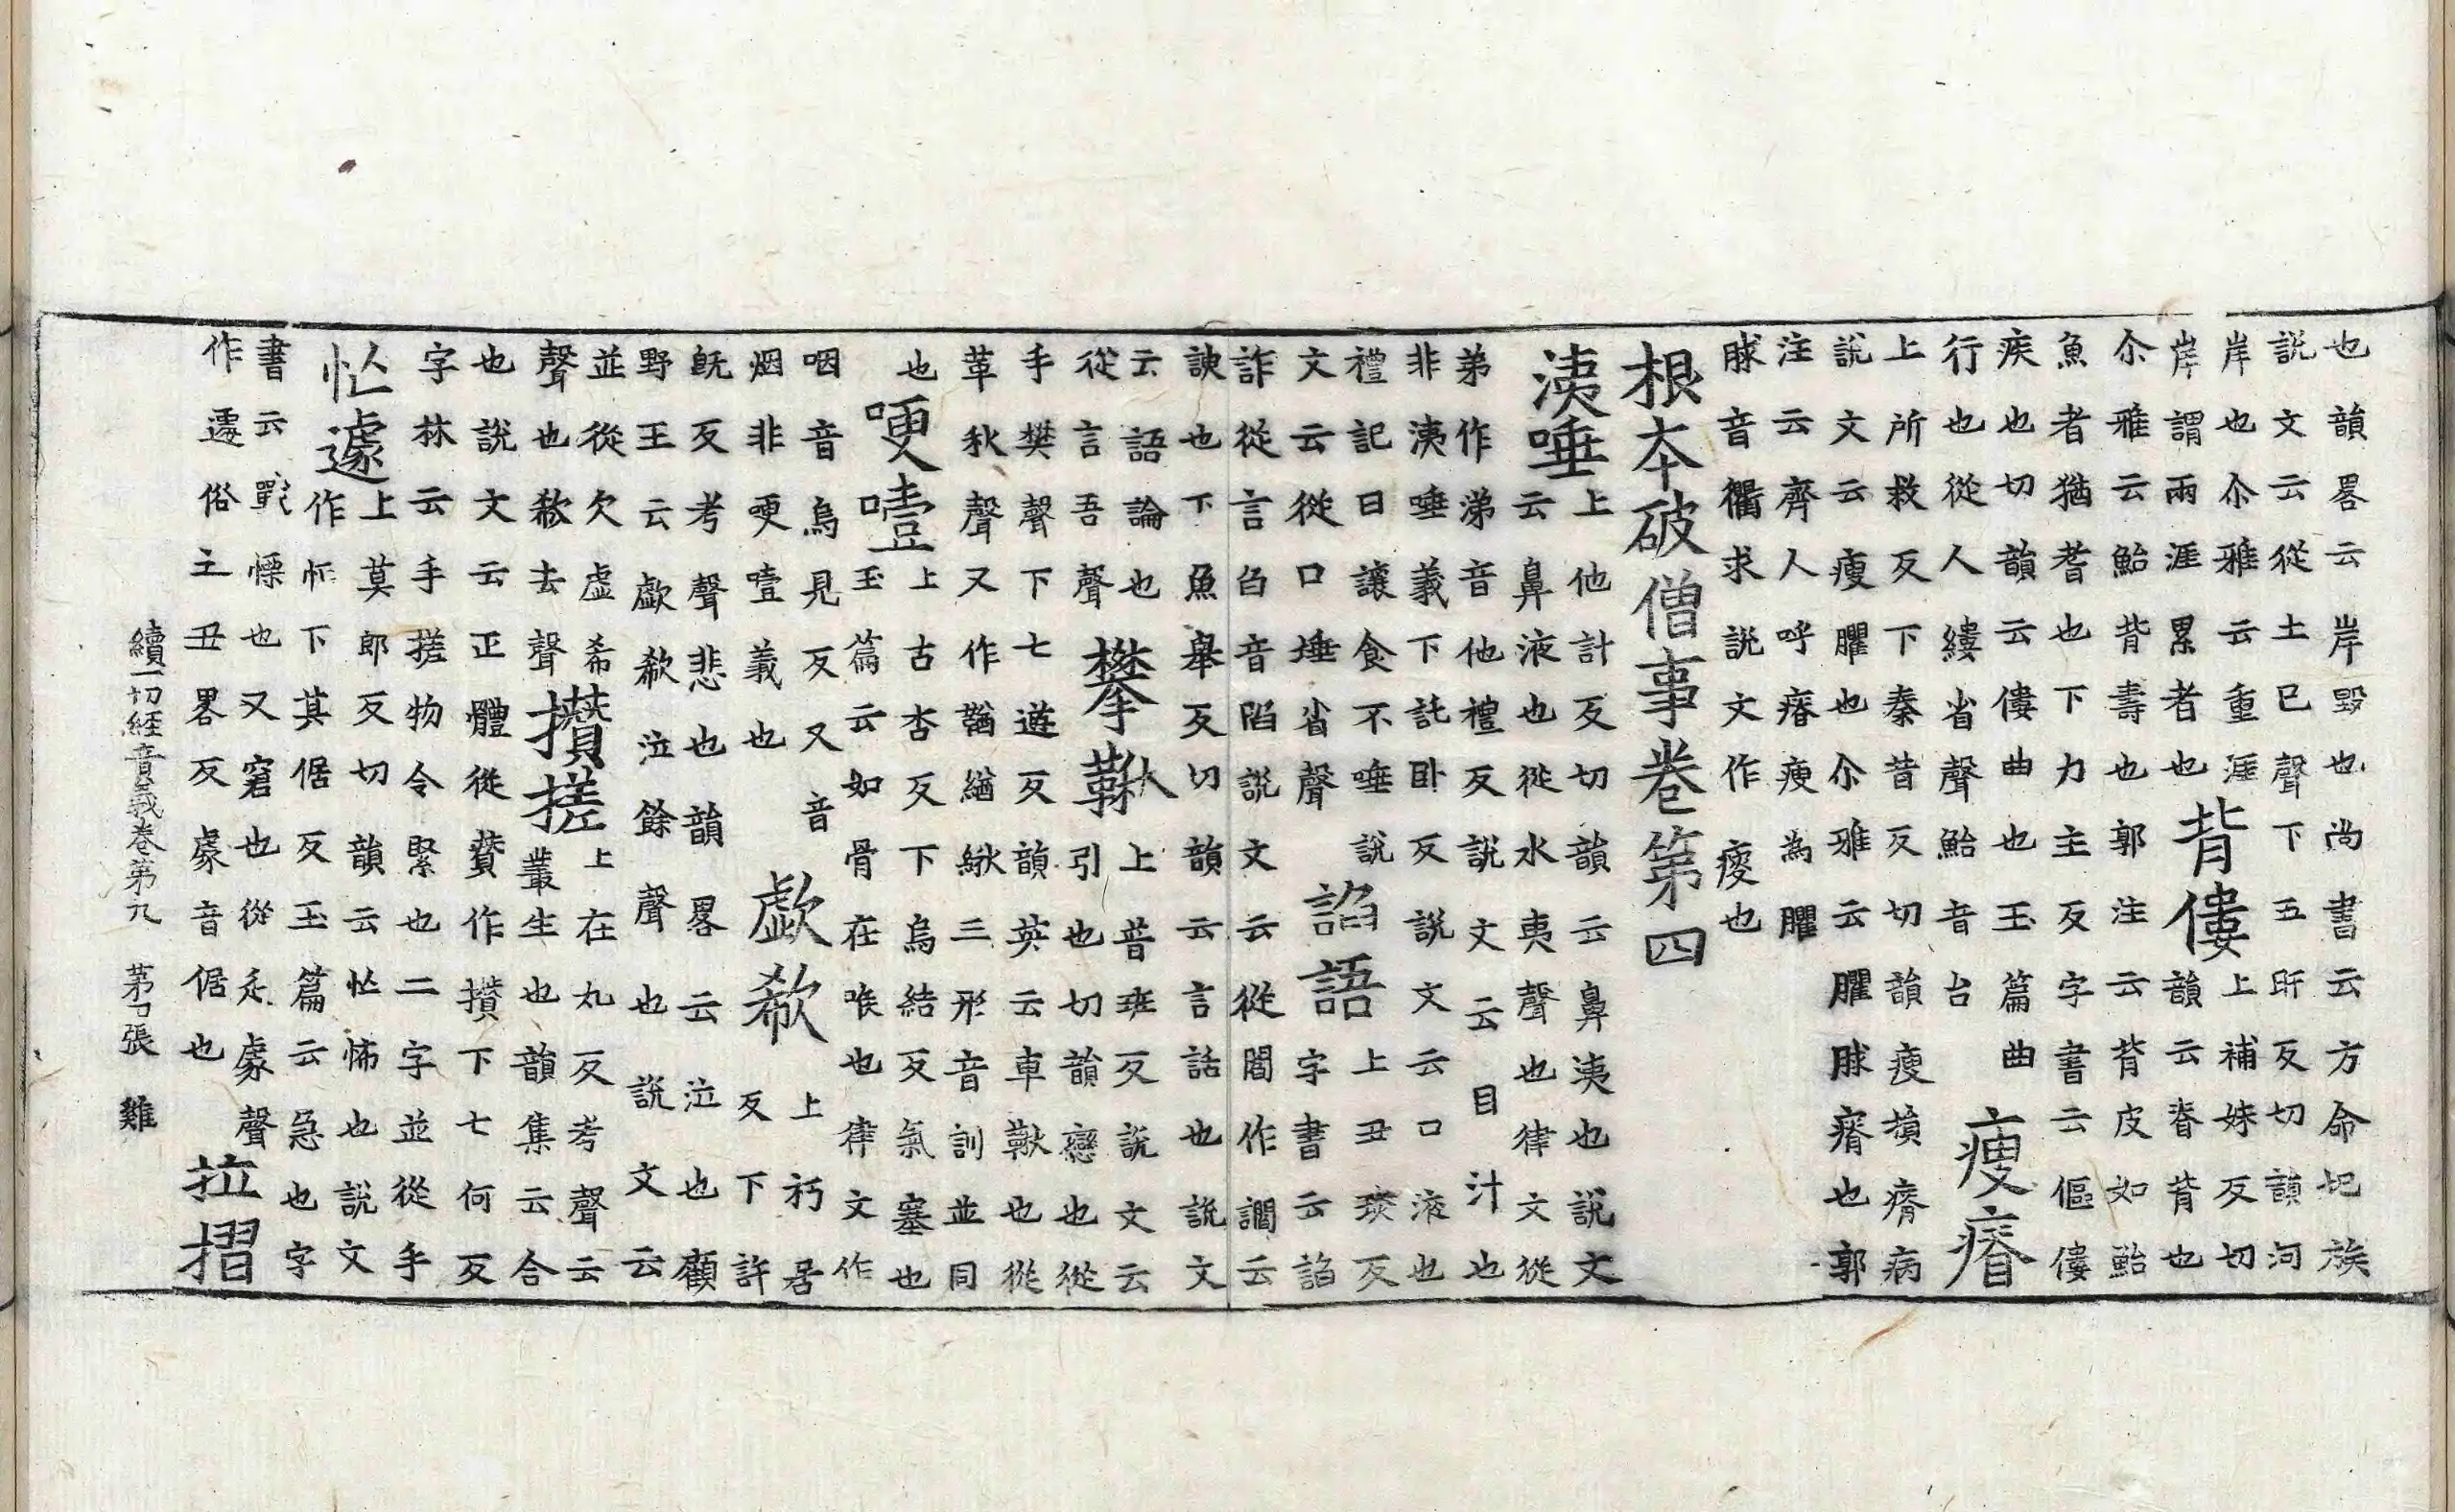 也韻畧云岸毀也尚書云方命圯族
說文云從土巳聲下五旰反切韻河
岸也尒雅云重涯岸上補妹反切
岸謂兩涯累者也背僂韻云脊背也
尒雅云鮐背壽也郭注云背皮如鮐
魚者猶耆也下力主反字書云傴僂
疾也切韻云僂曲也玉篇曲
行也從人縷省聲鮐音台瘦瘠
上所救反下秦昔反切韻瘦損瘠病
說文云瘦臞也尒雅云臞脙瘠也郭
注云齊人呼瘠瘦為臞
脙音衢求說文作㾪也
根本破僧事卷第四
洟唾上他計反切韻云鼻洟也說文
云鼻液也從水夷聲也律文從
弟作涕音他禮反說文云目汁也
非洟唾義下託卧反說文云口液也
禮記曰讓食不唾說諂語上丑琰反
文云從口埵省聲字書云諂
詐從言臽音陷說文云從閻作讇云
諛也下魚舉反切韻云言話也說文
云語論也攀鞦上普班反說文云
從言吾聲引也切韻戀也從
手樊聲下七遊反韻英云車鞦也從
革秋聲又作鞧緧緅三形音訓並同
也哽噎上古杏反下烏結反氣塞也
玉篇云如骨在喉也律文作
咽音烏見反又音歔欷上朽居
烟非哽噎義也反下許
旣反考聲悲也韻畧云泣也顧
野王云歔欷泣餘聲也說文云
並從欠虛希攢搓上在丸反考聲云
聲也欷去聲叢生也韻集云合
也說文云正體從贊作攢下七何反
字林云手搓物令緊也二字並從手
忙遽上莫郎反切韻云忙怖也說文
作㤀下其倨反玉篇云急也字
書云戰慄也又窘也從辵豦聲
作遽俗土丑畧反豦音倨也拉摺
續一切經音義卷第九 第刀張 雞